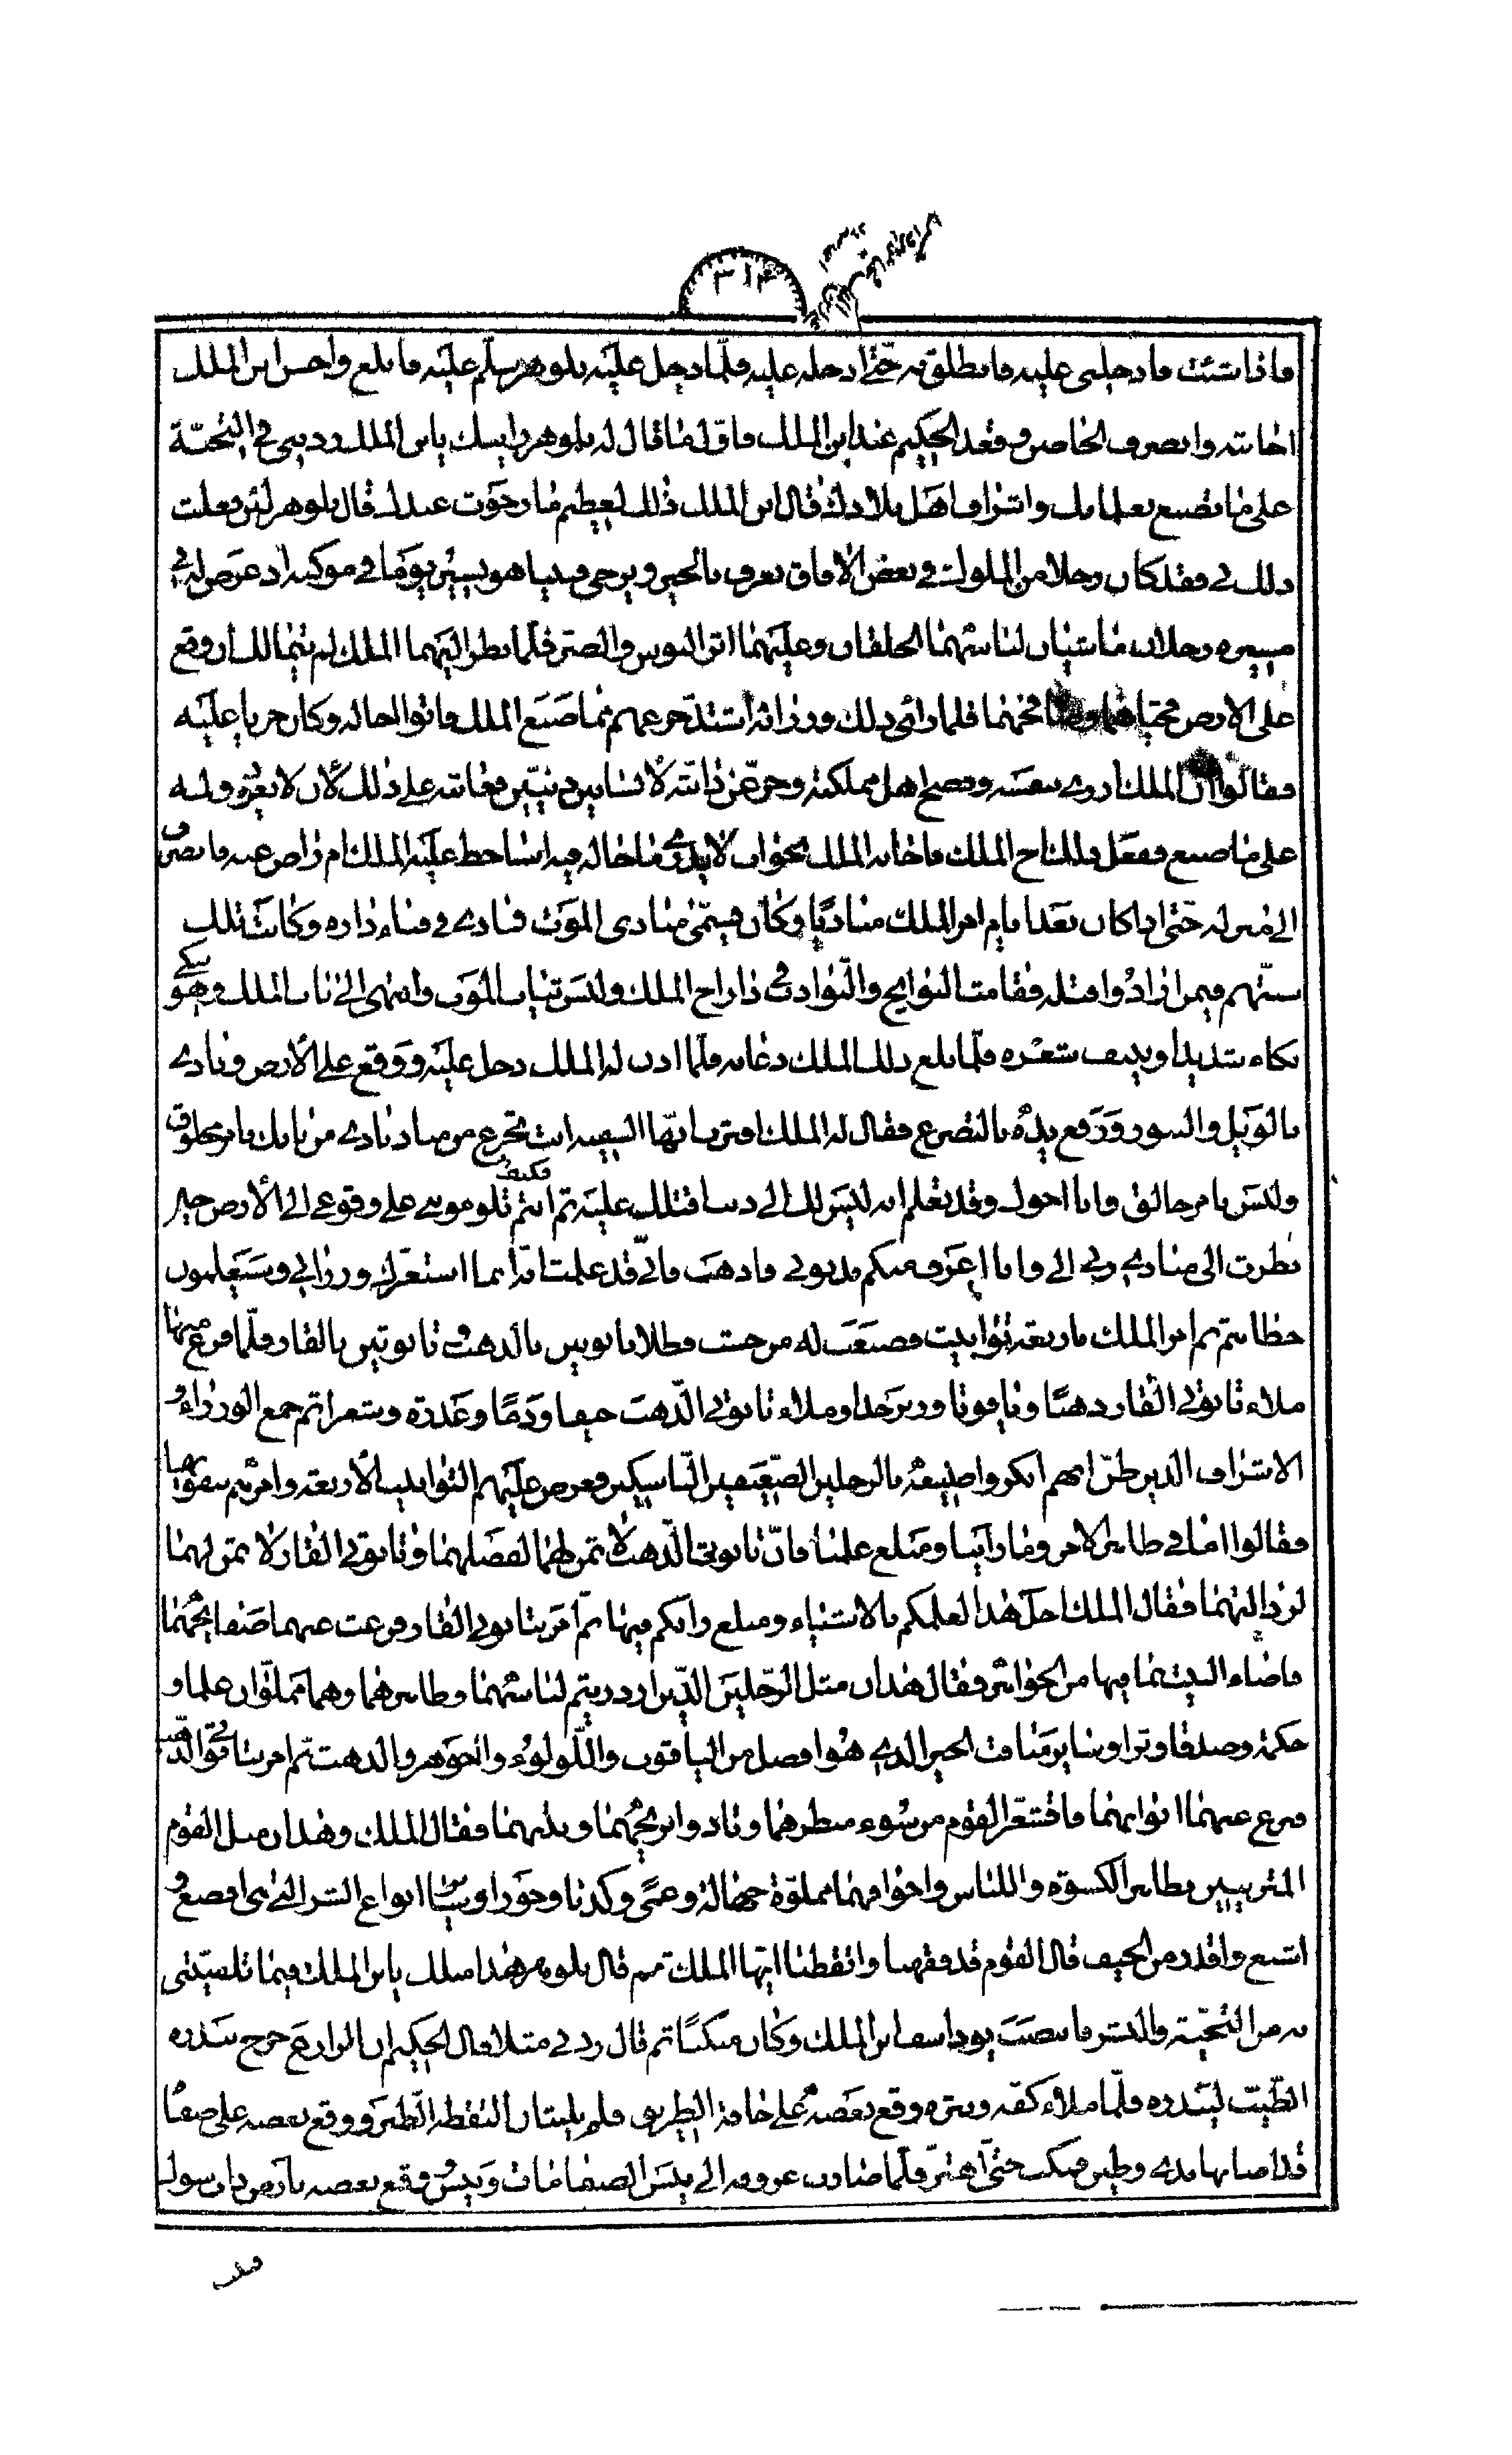 ٣١۴
فاذا شئت فادخلنى عليه فانطلق به حتّى ادخله عليه فلمّا دخل عليه بلوهر سلّم عليه فابلغ واحسن ابن الملك
اجابته وانصرف الخاص وقعد الحكيم عند ابن الملك فاوّل ما قال له بلوهر رايتك يابن الملك زدتنى في التحيّة
على ما تصنع بغلمانك واشراف اهل بلادك قال ابن الملك ذلك لعظيم ما رجوت عندك قال بلوهر لئن فعلت
ذلك بي فقد كان رجلا من الملوك في بعض الآفاق يعرف بالخير ويرجى فبينا هو يسير يوما في موكبه اذ عرض له في
مسيره رجلان ماشيان لباسهما الخلقان وعليهما اثر البؤس والضر فلمّا نظر اليهما الملك لم يتمالك ان وقع
على الارض فحيّاهما وصافحهما فلما راى ذلك وزرائه اشتدّ جزعهم ممّا صنع الملك فاتوا اخا له وكان جريا عليه
فقالوا انّ الملك ازرى بنفسه وفضح اهل مملكته وخرّ عن دابّته لانسانين دنيّين فعاتبه على ذلك لان لا يعود ولمه
على ما صنع ففعل ذلك اخ الملك فاجابه الملك بجواب لا يدرى ما حاله فيه اساخط عليه الملك ام راض عنه فانصرف
الى منزله حتى اذا كان بعد ايام امر الملك مناديا وكان يسمّى منادى الموت فنادى في فناء داره وكانت تلك
سنّتهم فيمن ارادوا قتله فقامت النوايح والنوادب في دار اخ الملك ولبس ثياب الموت وانتهى الى باب الملك وهو يبكي
بكاء شديدا وينتف شعره فلمّا بلغ ذلك الملك دعا به فلمّا اذن له الملك دخل عليه ووقع على الارض ونادى
بالويل والثبور ورفع يده بالتضرع فقال له الملك اقترب ايّها السفيه انت تجزع من مناد نادى من بابك بامر مخلوق
وليس بامر خالق وانا اخوك وقد تعلم انه ليس لك الى ذنب اقتلك عليه ثم انتم تلومونى على وقوعى الى الارض حين
نظرت الى منادى ربى الى وانا اعرف منكم بذنوبى فاذهب فانّى قد علمت انّه انما استغرّك وزرائى وسيعلمون
خطائهم ثم امر الملك باربعة توابيت فصنعت له من خشب فطلا تابوتين بالذهب وتابوتين بالقار فلمّا فرغ منها
ملاء تابوتى القار ذهبا وياقوتا وزبرجدا وملاء تابوتى الذّهب جيفا ودما وعذرة وشعرا ثم جمع الوزراء و
الاشراف الذين ظنّ انهم انكروا صنيعه بالرجلين الضّعيفين النّاسكين فعرض عليهم التوابيت الاربعة وامرهم بتقويمها
فقالوا امّا في ظاهر الامر وما راينا ومبلغ علمنا فانّ تابوتى الذّهب لا ثمن لهما لفضلهما وتابوتى القار لا ثمن لهما
لرذالتهما فقال الملك اجل هذا لعلمكم بالاشياء ومبلغ رايكم فيها ثمّ امر بتابوتى القار فنزعت عنهما صفايحهما
فاضاء البيت بما فيها من الجواهر فقال هذان مثل الرّجلين الّذين ازدريتم لباسهما وظاهرهما وهما مملوّان علما و
حكمة وصدقا وبرا وساير مناقب الخير الذى هو افضل من الياقوت واللؤلؤ والجوهر والذهب ثم امر بتابوتى الذهب
فنزع عنهما ابوابهما فاقشعرّ القوم من سوء منظرهما وتاذوا بريحهما ونتنهما فقال الملك وهذان مثل القوم
المتزينين بظاهر الكسوة واللباس واجوافهما مملوّة جهالة وعمى وكذبا وجورا وساير انواع الشر التى هى افضع و
اشنع واقذر من الجيف قال القوم قد فقهنا واتّعظنا ايّها الملك ثم قال بلوهر هذا مثلك يابن الملك فيما تلقّيتنى
به من التحيّة والبشر فانتصب يوذاسف ابن الملك وكان متكئا ثم قال زدنى مثلا قال الحكيم ان الزارع خرج ببذره
الطّيّب ليبذره فلمّا ملاء كفّه ونثره وقع بعضه على حافة الطريق فلم يلبث ان التقطه الطير ووقع بعضه على صفا
قد اصابها ندى وطين فمكث حتّى اهتزّ فلمّا صارت عروقه الى يبس الصفا مات ويبس ووقع بعضه بارض ذات شوك